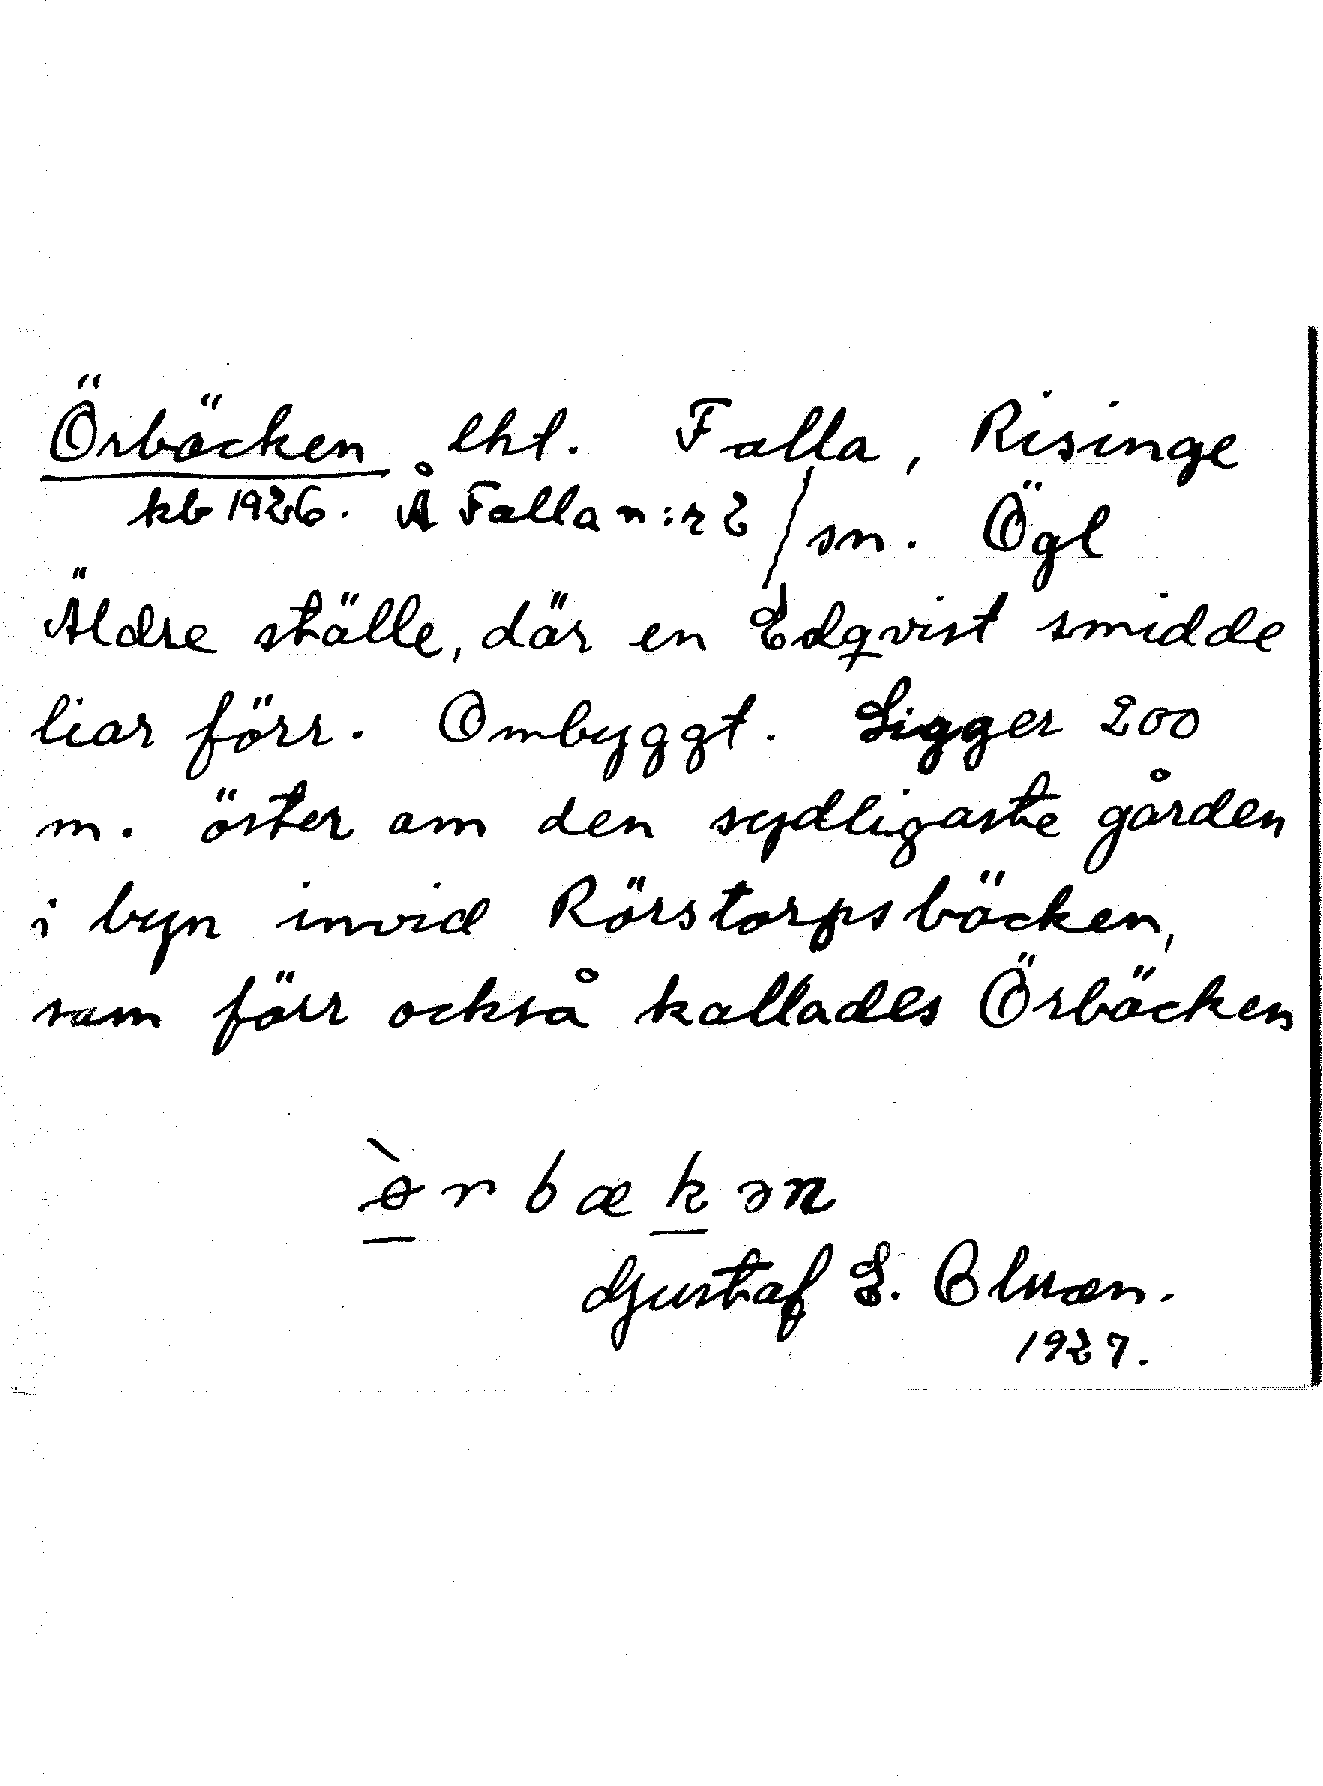 Örbäcken lht. Falla, Risinge
kb 1926. Å Falla n:r 2 / sn. Ögl
Äldre ställe, där en Edqvist smidde
liar förr. Ombyggt. Ligger 200
m. öster om den sydligaste gården
i byn invid Rörstorpsbäcken,
som förr också kallades Örbäcken
ɵ̀rbækən
Gustaf E.
1927.